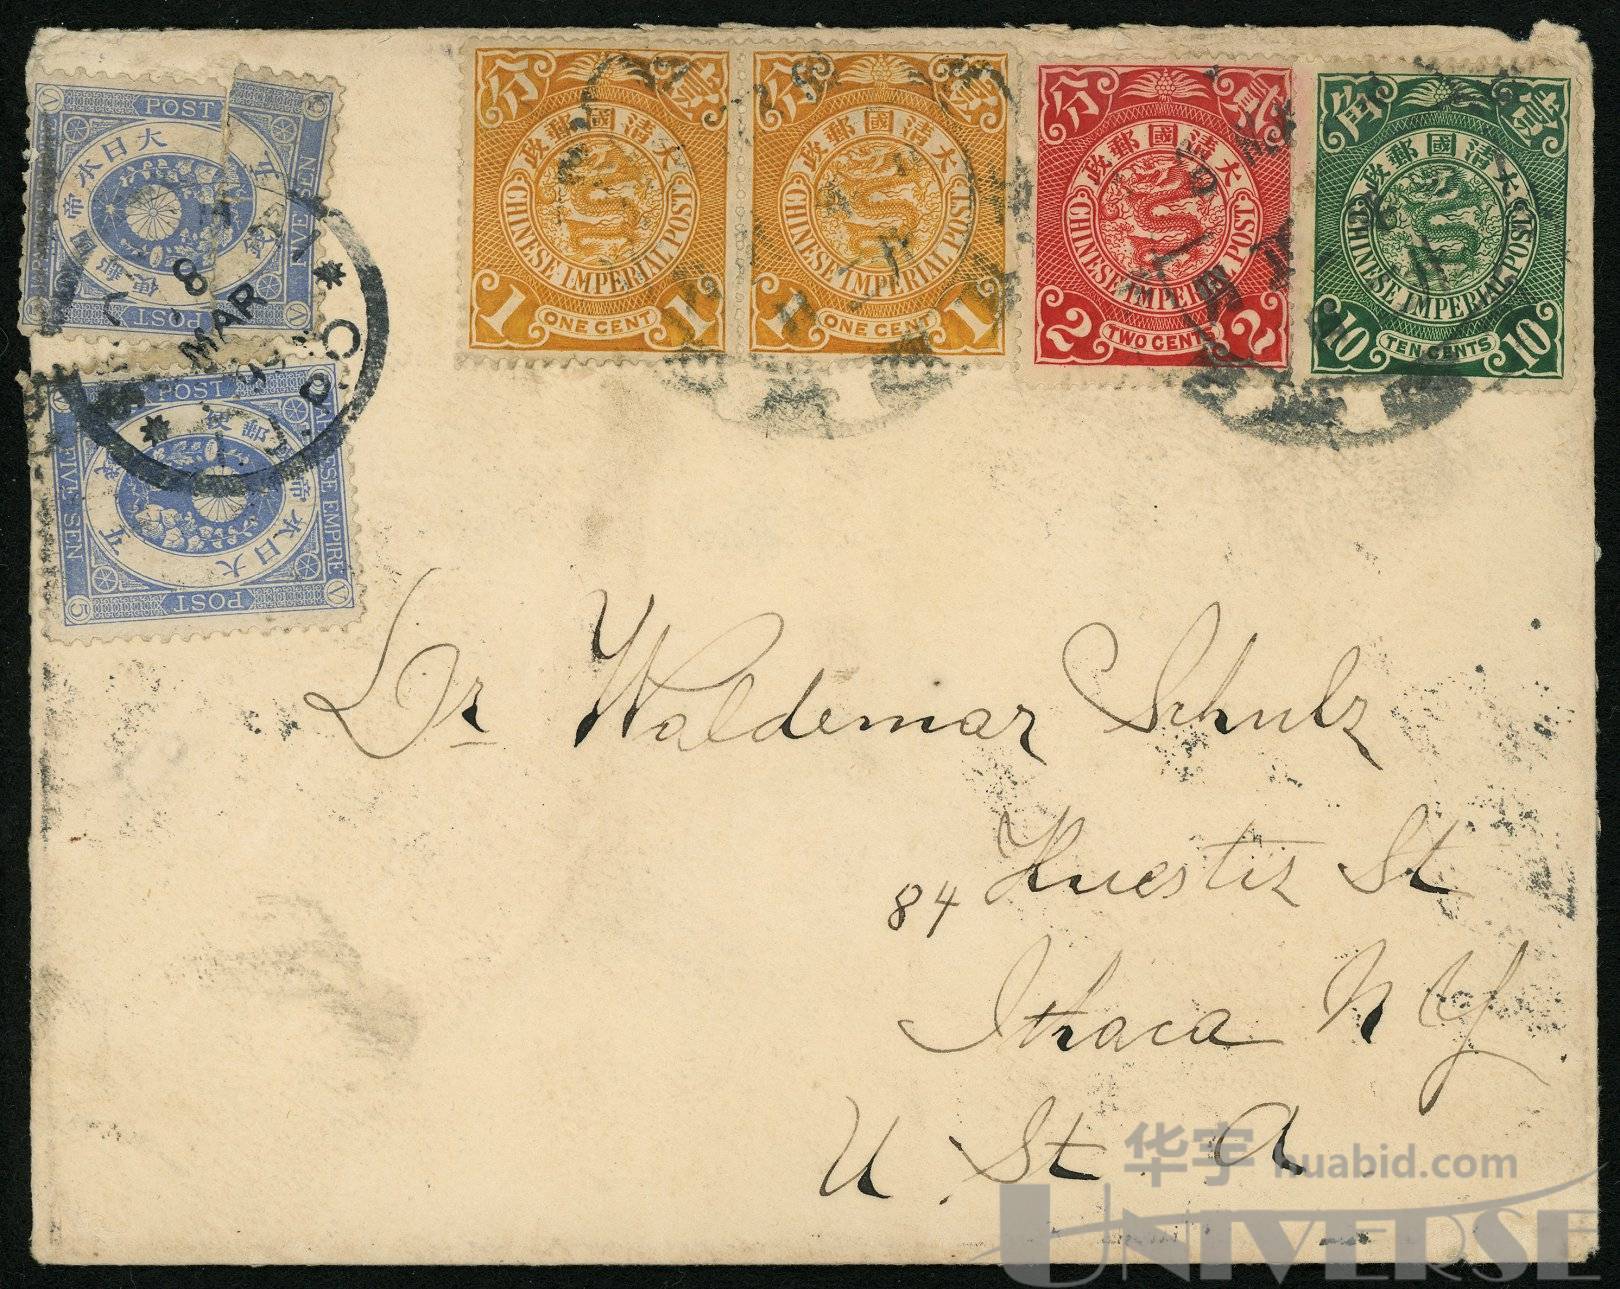 POST
大日本帝國郵便
五錢
FIVE SEN
POST
8
MAR
99
I.J.P.O
POST
JAPANESE EMPIRE
FIVE SEN
大日本帝
郵便
五
POST
V
5
分 壹
大清國郵政
CHINESE IMPERIAL POST
1 ONE CENT 1
分 壹
大清國郵政
CHINESE IMPERIAL POST
1 ONE CENT 1
分 貳
大清國郵政
CHINESE IMPERIAL POST
2 TWO CENTS 2
角 壹
大清國郵政
CHINESE IMPERIAL POST
10 TEN CENTS 10
Dr Waldemar Schulz
84 Huestis St
Ithaca N Y
U. St. A.
华宇 huabid.com
UNIVERSE